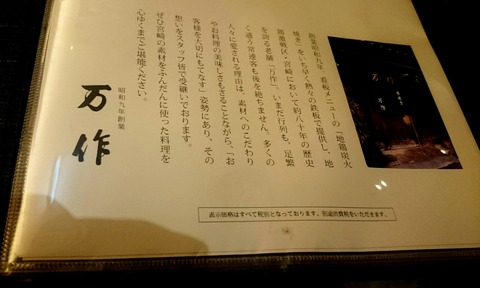 創業昭和九年 看板メニューの「地鶏炭火
焼き」をいち早く熱々の鉄板で提供し、地
鶏激戦区・宮崎において約八十年の歴史
を誇る老舗「万作」。いまだ行列も、足繁
く通う常連客も後を絶ちません。多くの
人々に愛される理由は、素材へのこだわり
やお料理の美味しさもさることながら、「お
客様を大切にもてなす」姿勢にあり、その
想いをスタッフ皆で受継いでおります。
ぜひ宮崎の素材をふんだんに使った料理を
心ゆくまでご堪能ください。
昭和九年創業
万作
表示価格はすべて税別となっております。別途消費税をいただきます。